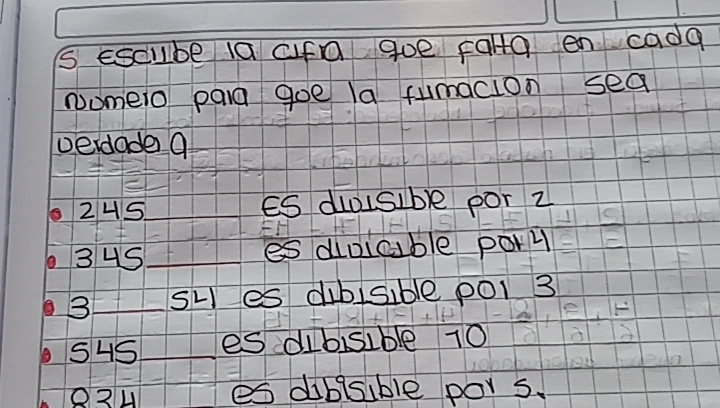 5 Escilbe la cifra que falta en cada
nomero para que la firmacion sea
verdadera
245 ____ Es divisible por 2
345 ____ es divicible por 4
3 ____ 54 es dibisible por 3
545 ____ es dibisible 10
834 ____ es dibisible por 5.